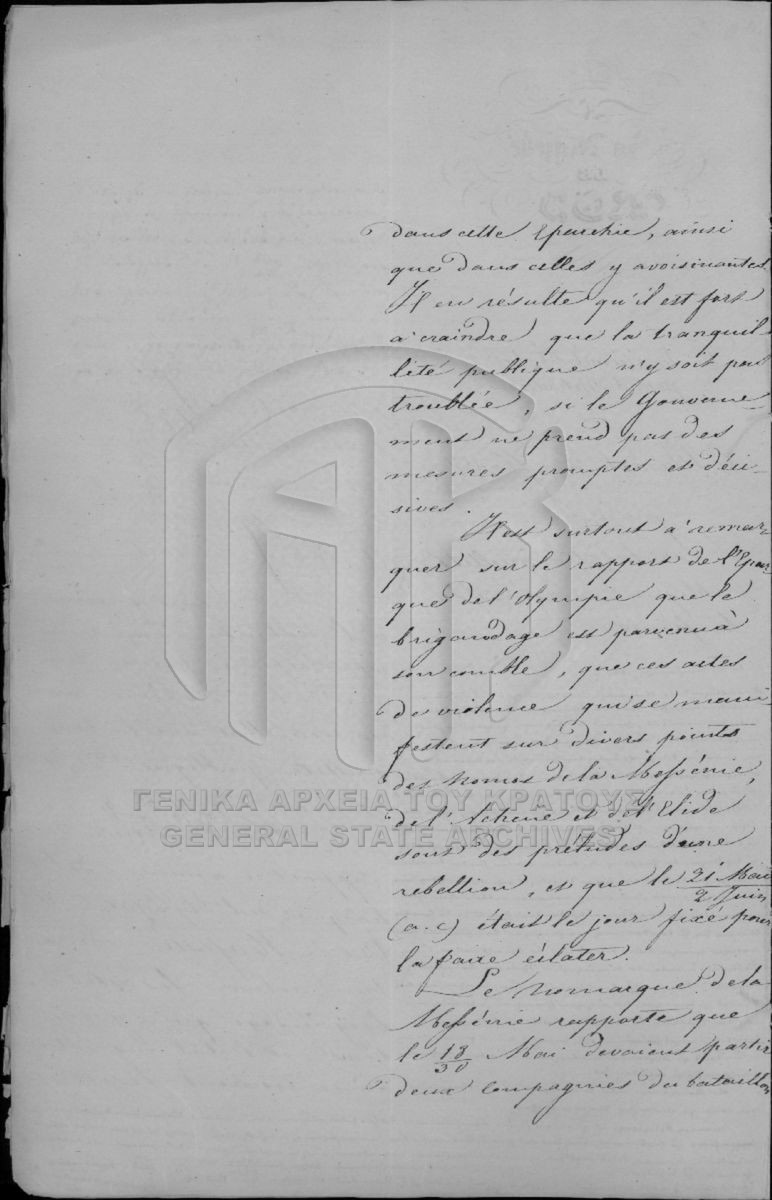 dans cette Eparchie, ainsi
que dans celles y avoisinantes.
Il en résulte qu'il est fort
à craindre que la tranquil
lité publique n'y soit pas
troublée, si le Gouverne-
ment ne prend pas des
mesures promptes et déci-
sives.
Il est surtout à remar-
quer sur le rapport de l'Epar-
que de l'Olympie que le
brigandage est parvenu à
son comble, que ces actes
de violence qui se mani-
festent sur divers points
des Nomos de la Messénie,
de l'Achaie et de l'Elide
ΓΕΝΙΚΑ ΑΡΧΕΙΑ ΤΟΥ ΚΡΑΤΟΥΣ
GENERAL STATE ARCHIVES
sont des préludes d'une
rebellion, et que le 21 Mai/2 Juin
(a.c) était le jour fixé pour
la faire éclater.
Le Nomarque de la
Messénie rapporte que
le 18/30 Mai devaient partir
deux compagnies du bataillon